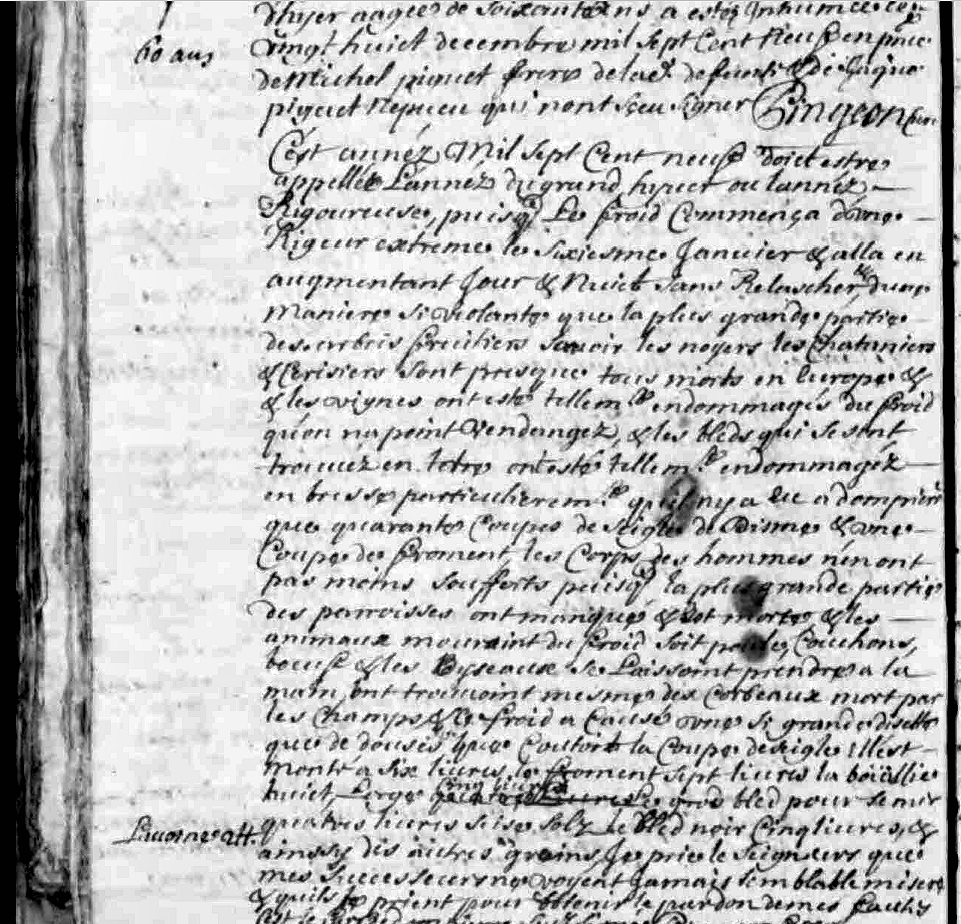 60 ans
d'huyer aagée de soixante ans a estez Inhumée ce
vingt huict decembre mil sept Cent Neuf en pnce
de Michel piquet frere de lad. defunte & de Jaque
piquet Nepveu qui n'ont sçeu signer Pingeon curé
C'est année Mil sept Cent neuf doict estre
appellée L'année du grand hyver ou l'année
Rigoureuse, puisq Le froid Commença d'une
Rigeur extreme le sixiesme Janvier & alla en
augmentant Jour & Nuict sans Relascher d'une
maniere si violante que la plus grande partie
des arbres fruitiers savoir les noyers les Chataniers
& Cerisiers sont presque tous morts en Europe &
& les vignes ont esté tellemt endommagés du froid
qu'on n'a point Vendangez, & les bleds qui se sont
trouvez en terre ont esté tellemt endommagéz
en bresse particulieremt qu'il n'y a Eu a dompierre
que quarante Coupes de seigle de Disme & une
Coupe de froment, les Corps des hommes n'en ont
pas moins soufferts puisq la plus grande partie
des parroisses ont manqué & sont morte & les
animaux mouroint du froid soit poule, Couchons,
boeufs & les Oyseaux se Laissoint prendre a la
main, ont trouvoint mesme des Corbeaux mort par
les Champs & Le froid a Causé une si grande disette
que de dousis que Coutoit la Coupe de seigle Il est
monté a six livres, le froment sept livres la
huict, L'orge cinq livres le gros bled pour semer
quatres livres seise solz le bled noir Cinq livres, &
Lavoine 2tt
ainssy des autres grains Je prie le seigneur que
mes successeurs ne voyent Jamais semblable misere
& quils prient pour obtenir le pardon de mes fautes